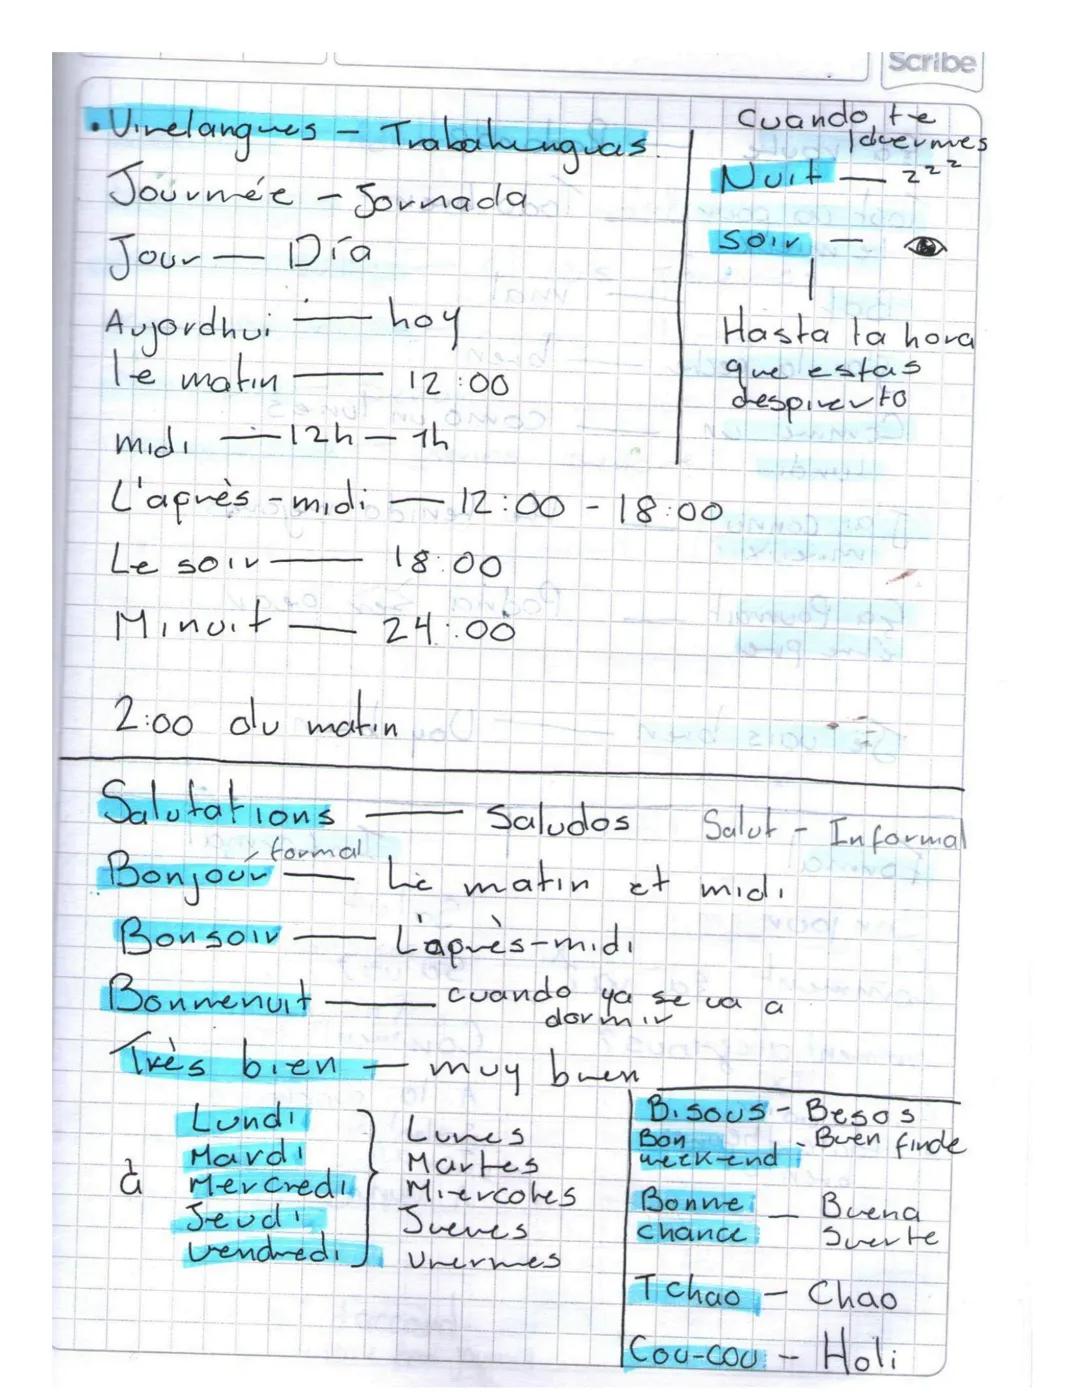 Scribe
• Virelangues - Trabalenguas.
Journée - Jornada
Jour — Día
Aujordhui — hoy
le matin — 12:00
midi — 12h - 1h
L'après-midi — 12:00 - 18:00
Le soir — 18:00
Minuit — 24:00
2:00 du matin
Cuando te
duermes
Nuit — zzz
Soir —
Hasta la hora
que estas
despierto
Salutations — Saludos
Salut - Informal
formal
Bonjour — Le matin et midi
Bonsoir — L'après-midi
Bonnenuit — cuando ya se va a
dormir
Très bien — muy buen
à
Lundi } Lunes
Mardi Martes
Mercredi Miercoles
Jeudi Jueves
Vendredi Viernes
Bisous - Besos
Bon
week-end - Buen finde
Bonne — Buena
chance Suerte
Tchao — Chao
Cou-cou - Holi